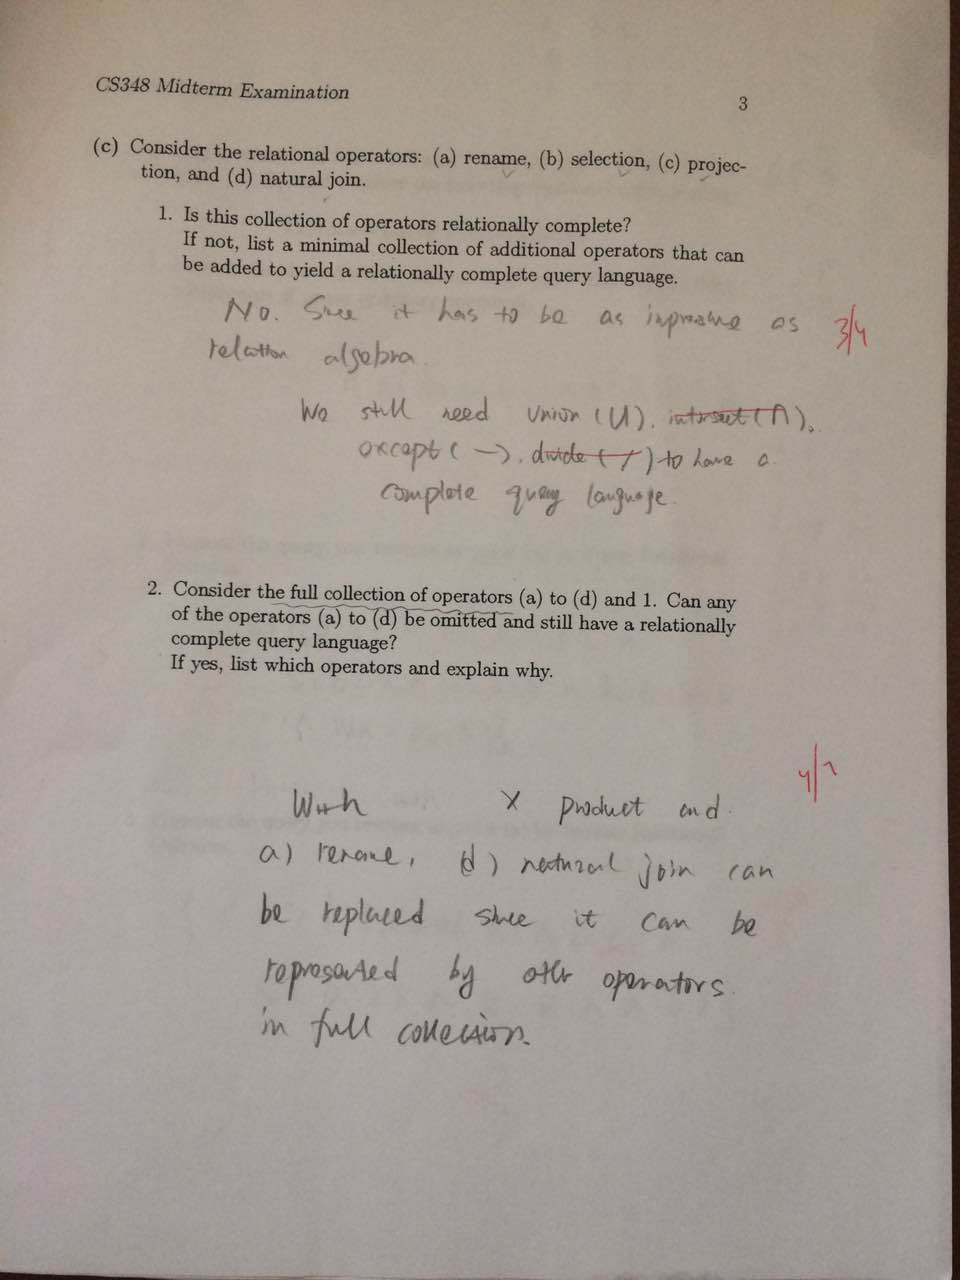 CS348 Midterm Examination
3
(c) Consider the relational operators: (a) rename, (b) selection, (c) projec-
tion, and (d) natural join.
1. Is this collection of operators relationally complete?
If not, list a minimal collection of additional operators that can
be added to yield a relationally complete query language.
No. Since it has to be as as
3/4
relation algebra.
We still need union (U), intersect (∩),
except ( — ), divide ( / ) to have a
complete query language.
2. Consider the full collection of operators (a) to (d) and 1. Can any
of the operators (a) to (d) be omitted and still have a relationally
complete query language?
If yes, list which operators and explain why.
With X product and
a) rename, d) natural join can
be replaced since it can be
represented by other operators.
in full collection.